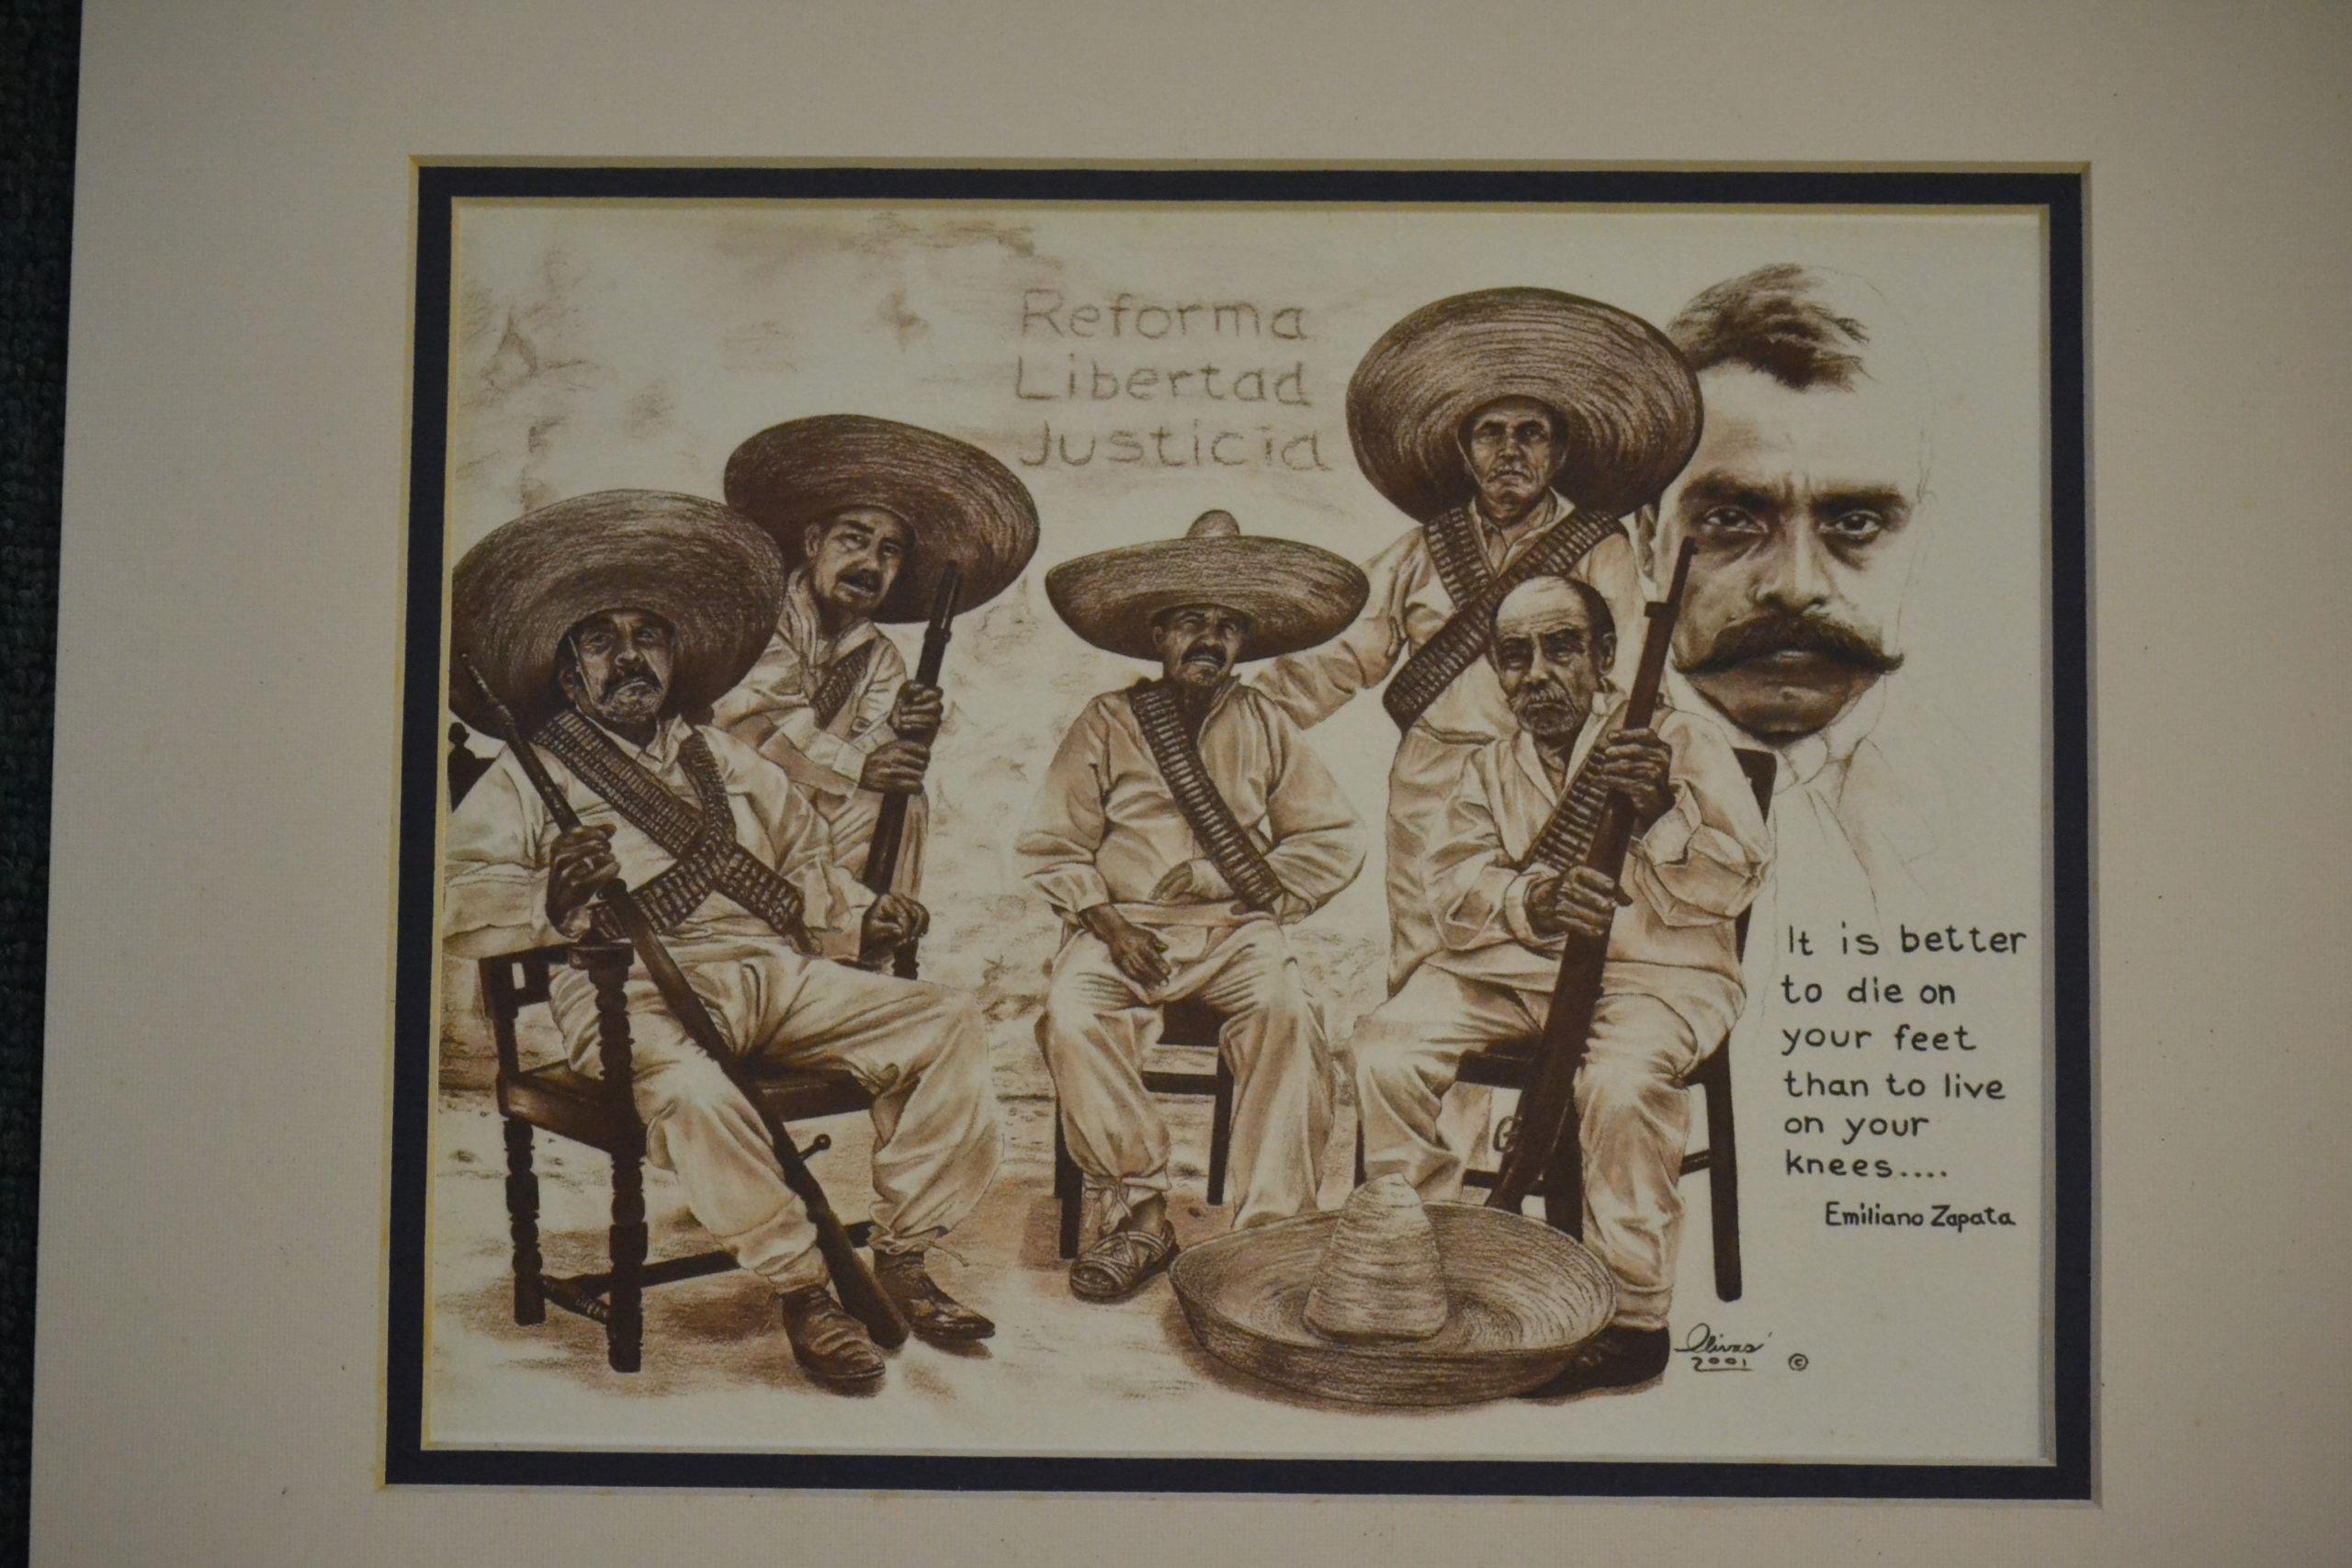 Reforma
Libertad
Justicia
It is better
to die on
your feet
than to live
on your
knees....
Emiliano Zapata
Olivas
2001 ©